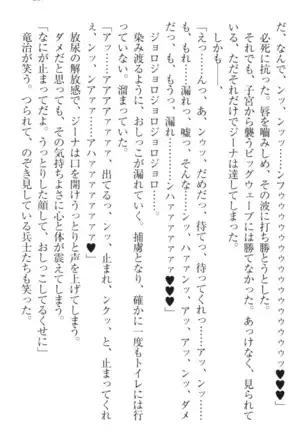 だ、なんで、ンッ、ンッ……ンフゥウゥゥゥゥゥゥゥゥゥゥゥ♥♥♥
必死に抗った。唇を嚙みしめ、その波に打ち勝とうとした。
それでも、子宮から襲うビッグウェーブには勝てなかった。あっけなく、見られて
いる、ただそれだけでジーナは達してしまった。
しかも――、
「えっ……んっ、あ、ンゥッ、だめだっ、待てっ、待ってくれっ……アッ、ンッ……
も、もれ……漏れっ、嘘っ、そんな……ンッ、ハァァンッ、アッ、アッ、ンッ、ダメ
だっ、も、もうっ、漏れ……………ンハァァァァァァァ♥」
ジョロジョロジョロジョロジョロ……。
染み渡るように、おしっこが漏れていく、捕虜となり、確かに一度もトイレには行
っていない。溜まっていた。
「アッ……アァァァァァァ……、出てるっ、ンッ、止まれ、ンクッ、と、止まってくれ
ぇ、ンッ、ンアァァァ……アハァァァァァァァ♥」
放尿の解放感で、ジーナは口を開けうっとりと声を上げてしまう。
ダメだと思っても、その気持ちよさに心と体が震えてしまう。
「なにが止まってだよ。うっとりした顔して、おしっこしてるくせに」
竜治が笑う。つられて、のぞき見している兵士たちも笑った。